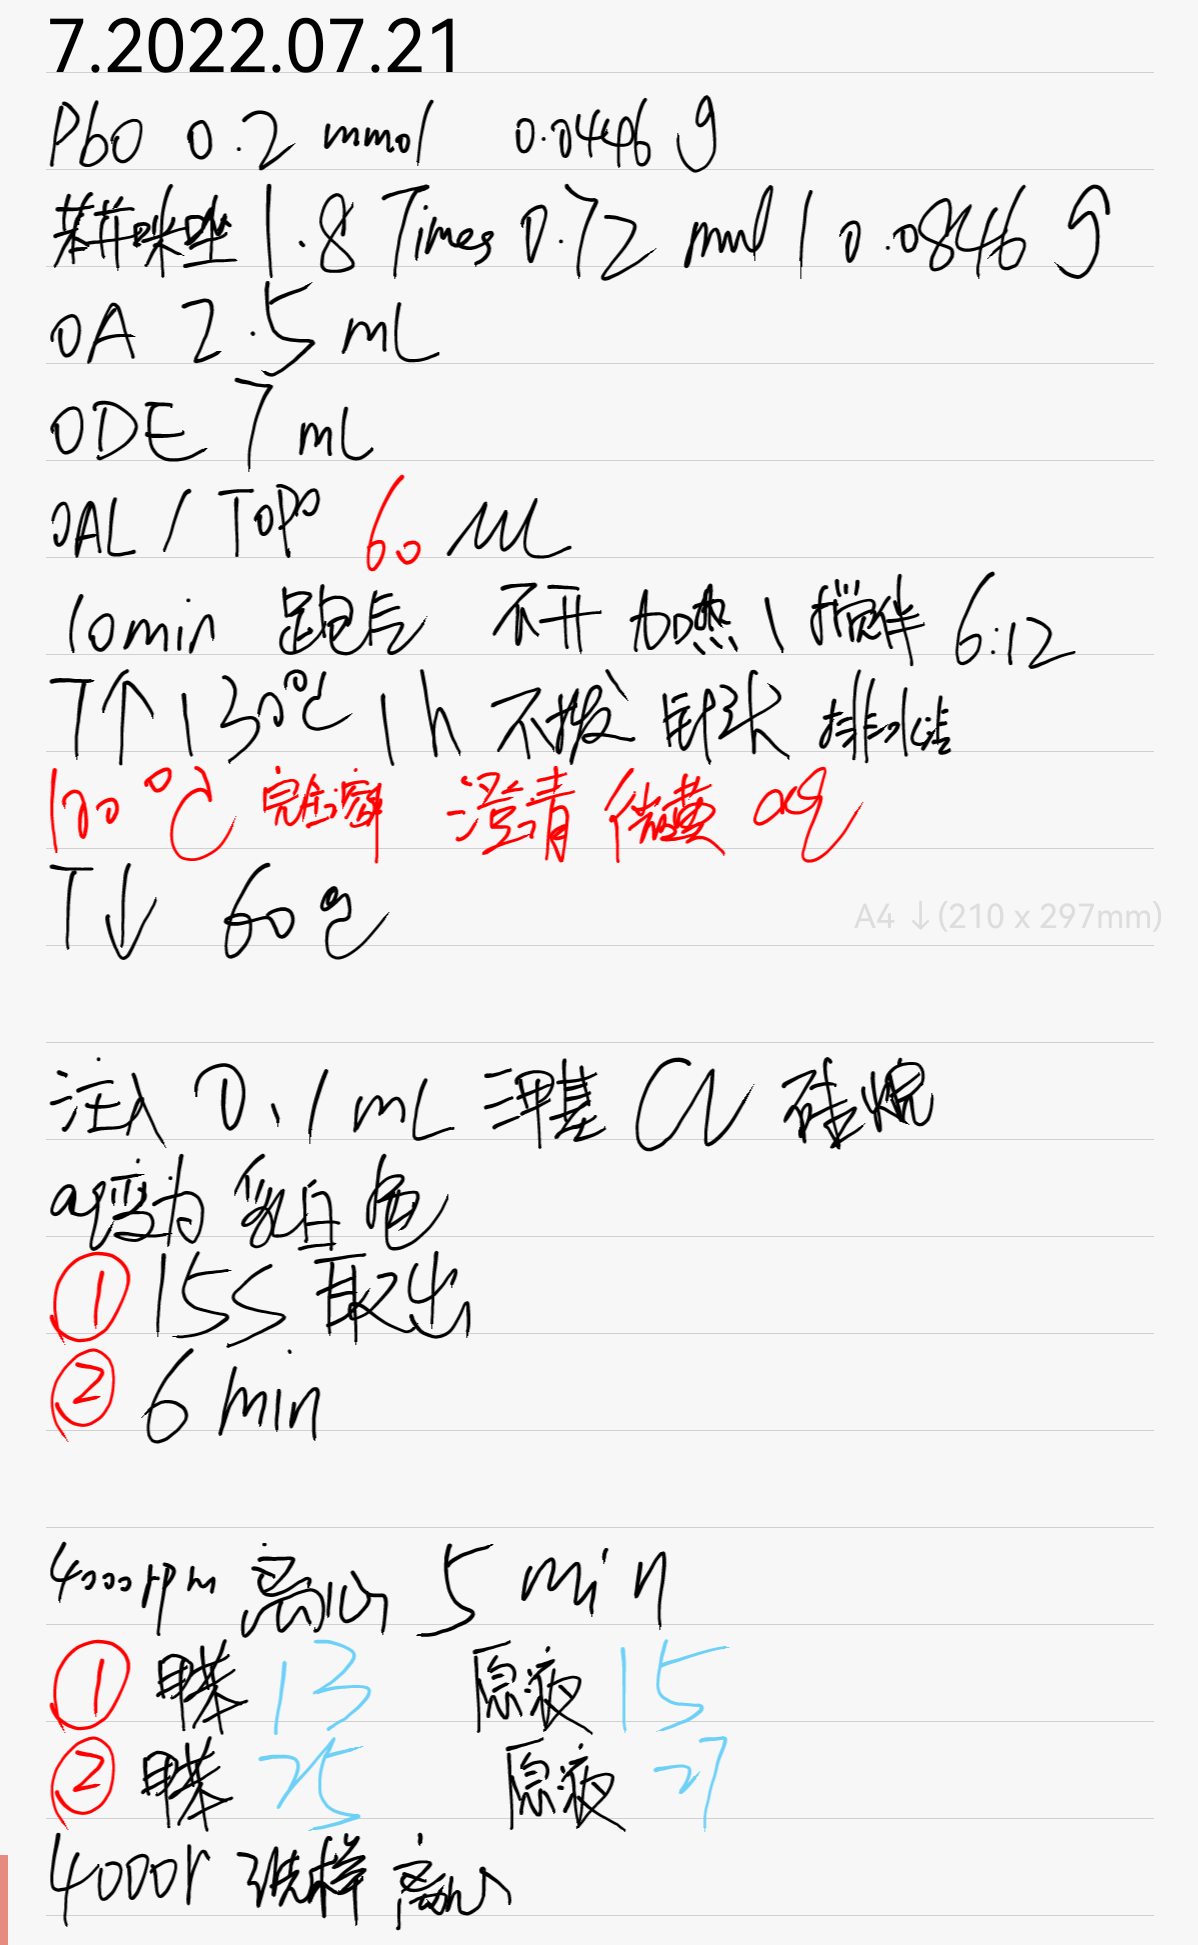 7.2022.07.21
PbO 0.2 mmol 0.0446 g
苯并咪唑 1.8 Times 0.72 mmol / 0.0846 g
OA 2.5 mL
ODE 7 mL
OAL / TOPO 60 μL
10min 跑后 不开 加热 \ 搅拌 6:12
T↑ 130℃ 1h 不拨 针头 排水洁
100℃ 完全溶解 澄清 微黄 aq
T↓ 60℃
A4 ↓(210 x 297mm)
注入 0.1mL 三甲基 Cl 硅烷
aq变为 乳白 色
① 15s 取出
② 6 min
4000rpm 离心 5 min
① 甲苯 13 原液 15
② 甲苯 25 原液 27
4000r 洗样 离心